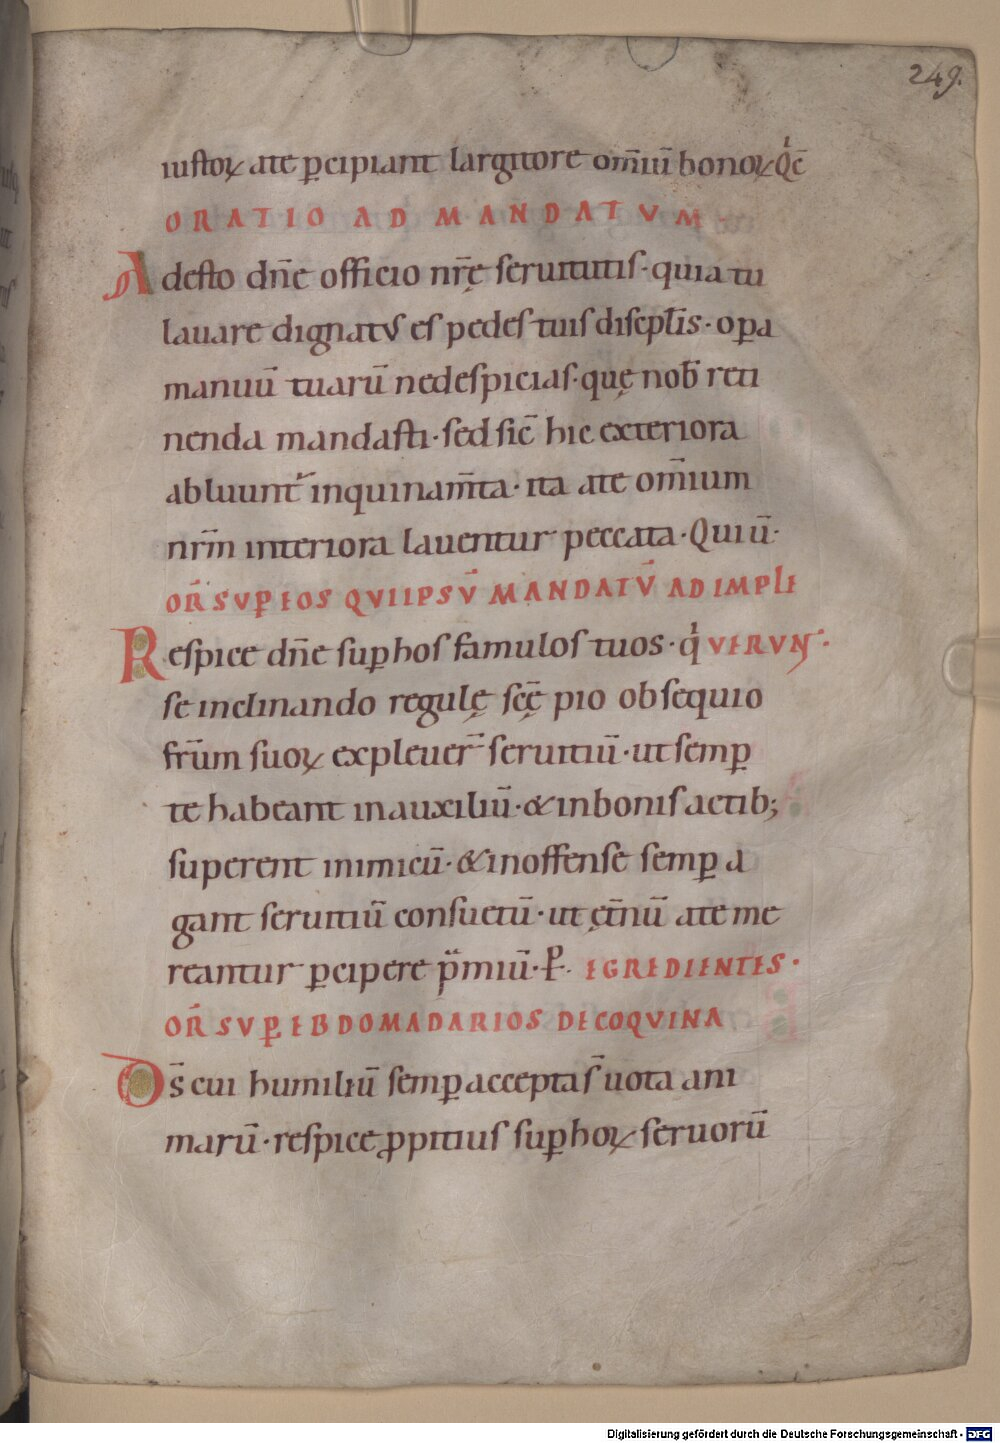 249.
iustoꝝ a te ꝑcipiant largitore om̄iū bonoꝝ Qͥē
ORATIO AD MANDATVM·
Adesto dn̄e officio nr̄ę seruitutis· quia tu
lauare dignatus es pedes tuis discipl̄is· opa
manuū tuarū ne despicias· quę nob̄ reti
nenda mandasti· sed sic̄ hic exteriora
abluunt᷑ inquinam̄ta· ita a te om̄ium
nr̄m interiora lauentur peccata· Qui ū·
OR̄ SVꝑ EOS QVI IPSV̄ MANDATV̄ ADIMPLE
Respice dn̄e suꝑ hos famulos tuos· qͥ VERVNͭ·
se inclinando regulę sc̄ę pio obsequio
fr̄um suoꝝ expleuer̄ seruitiū· ut semꝑ
te habeant in auxiliū· & in bonis actib;
superent inimicū· & inoffense semꝑ a
gant seruitiū consuetū· ut ęt̄nū a te me
reantur ꝑcipere p̄miū· P̱· EGREDIENTES·
OR̄ SVꝑ EBDOMADARIOS DE COQVINA
Ds̄ cui humiliū semꝑ accepta s̄ uota ani
marū· respice ꝓpitius suꝑ hoꝝ seruorū
Digitalisierung gefördert durch die Deutsche Forschungsgemeinschaft - DFG